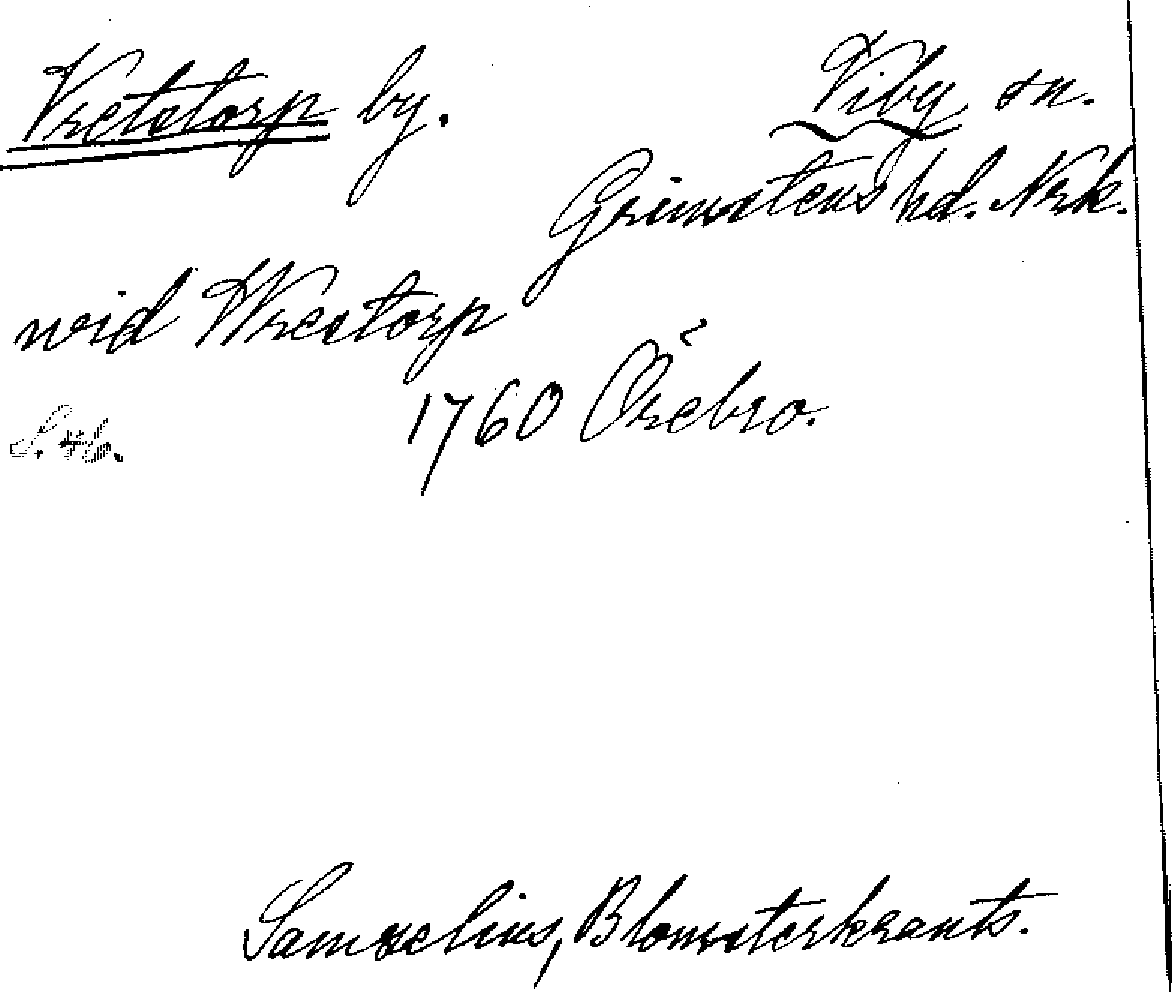 Vretstorp by. Viby sn.
Grimstens hd. Nrk.
wid Wrestorp
1760 Örebro.
S. 46.
Samzelius, Blomsterkrants.